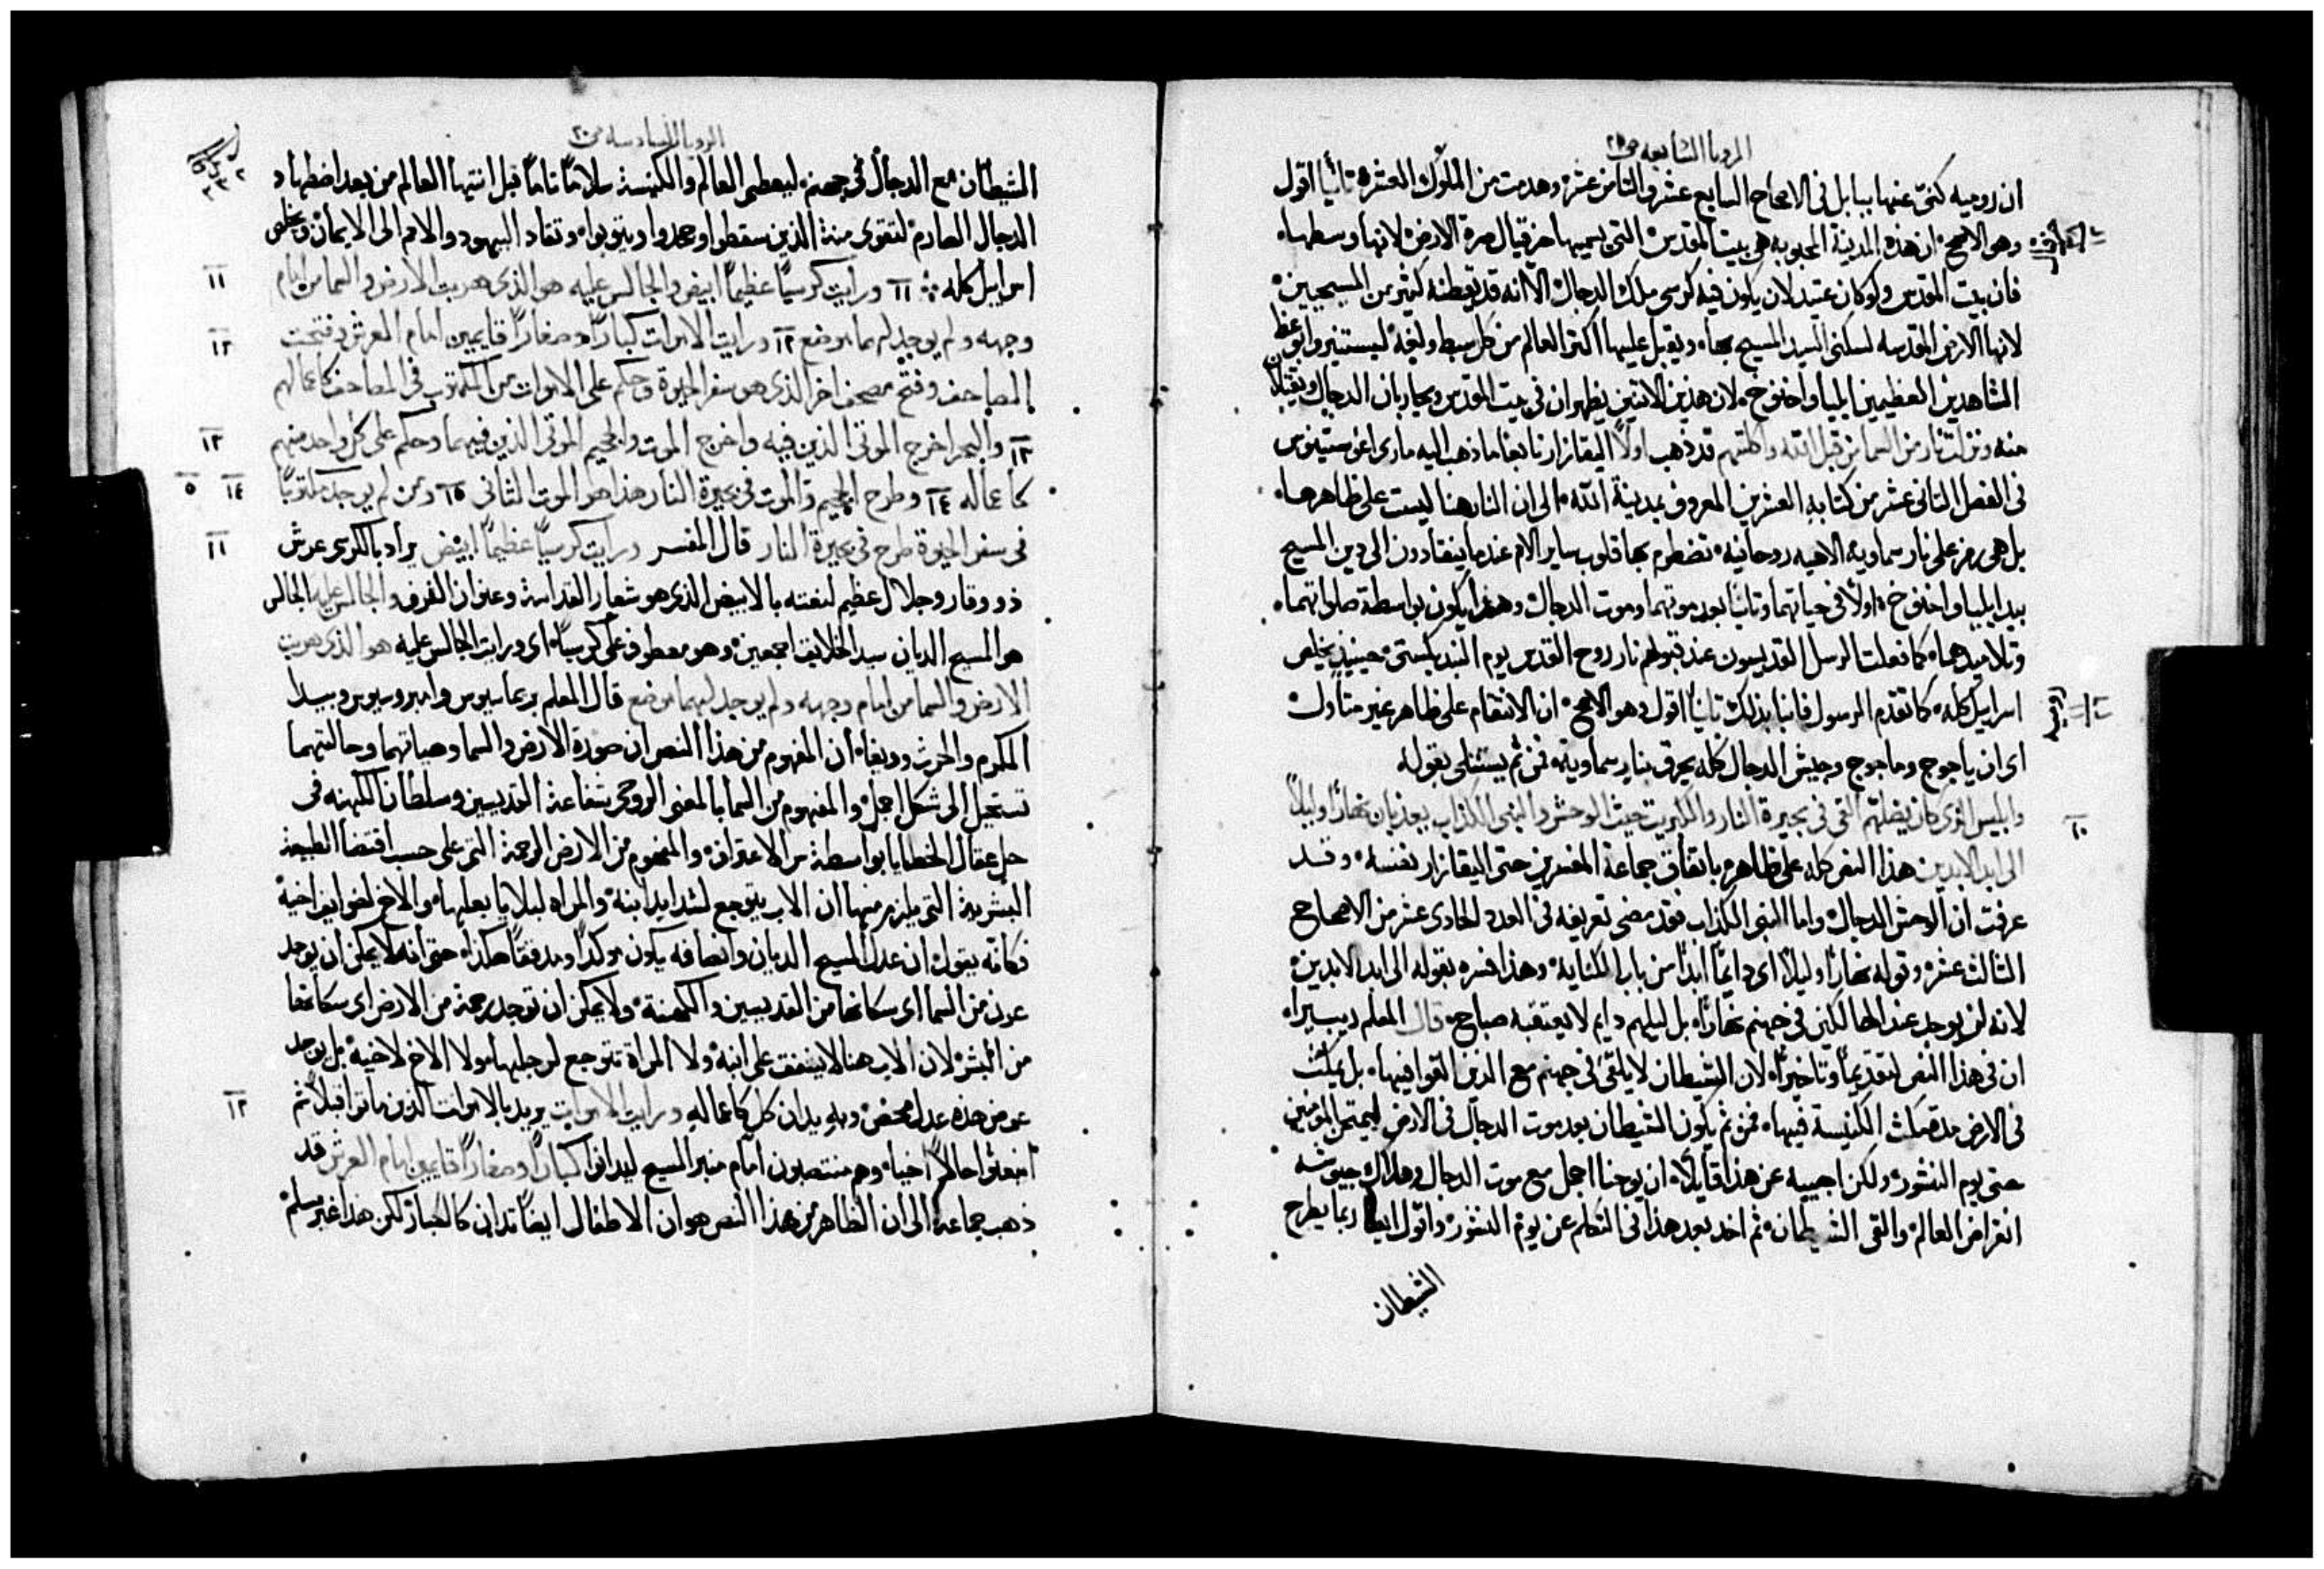 الرويا السابعه ص ٢٠
ان روميه كنى عنها ببابل فى الاصحاح السابع عشر والثامن عشر وهدمت من الملوك العشره ثانيا اقول
وهو الاصح ان هذه المدينة المحبوبه هى بيت المقدس التى يسميها حزقيال سرة الارض لانها وسطها
فان بيت المقدس ولو كان عتيد لان يكون فيه كرسى ملك الدجال الا انه قد يقطنه كثير من المسيحيين
لانها الارض المقدسه لسكنى السيد المسيح بها ويقبل عليها اكثر العالم من كل سبط ولغة ليستنيروا بوعظ
الشاهدين العظيمين ايليا واخنوخ لان هذين الاثنين يظهران فى بيت المقدس ويحاربان الدجال ويقتلان
منه ونزلت نار من السما من قبل الله واكلتهم قد ذهب اولا اليقازار تابعا ما ذهب اليه مارى اغوستينوس
فى الفصل الثانى عشر من كتابه العشرين المعروف بمدينة الله الى ان النار هنا ليست على ظاهرها
بل هى رمز على نار سماوية الاهيه روحانيه تضطرم بها قلوب ساير الامم عندما ينقادون الى دين المسيح
بيد ايليا واخنوخ اولا فى حياتهما وثانيا بعد موتهما وموت الدجال وهذا يكون بواسطة صلواتهما
وتلاميذهما كما فعلت الرسل القديسون عند قبولهم نار روح القدس يوم البنديكستى حينيذ يخلص
اسراييل كله كما تقدم الرسول فانبا بذلك ثانيا اقول وهو الاصح ان الانتقام على ظاهر غير متاول
اى ان ياجوج وماجوج وجيش الدجال كله يحرق بنار سماوية فمن ثم يستتلى بقوله
وابليس الذى كان يضلهم القى فى بحيرة النار والكبريت حيث الوحش والنبى الكذاب يعذبان نهارا وليلا
الى ابد الابدين هذا النص كله على ظاهره باتفاق جماعة المفسرين حتى اليقازار نفسه وقد
عرفت ان الوحش الدجال واما النبى الكذاب فقد مضى تعريفه فى العدد الحادى عشر من الاصحاح
الثالث عشر وقوله نهارا وليلا اى دايما ابدا من باب الكنايه وهذا فسره بقوله الى ابد الابدين
لانه لن يوجد عند الهالكين فى جهنم نهارا بل ليلهم دايم لا يعتقبه صباح قال المعلم ريبيرا
ان فى هذا النص تقديما وتاخيرا لان الشيطان لا يلقى فى جهنم مع الذين القوا فيها بل يمكث
فى الارض مدة مكث الكنيسة فيها فمن ثم يكون الشيطان بعد موت الدجال فى الارض ليمتحن المومنين
حتى يوم النشور ولكن اجيبه عن هذا قايلا ان يوحنا اجمل مع موت الدجال وهلاك جيوشه
انقراض العالم والقى الشيطان ثم اخد بعد هذا فى التكلم عن يوم النشور واقول ايضا ربما يطرح
الشيطان
١٠
الرويا السادسه ص ٢٠
الشيطان مع الدجال فى جهنم ليعطى العالم والكنيسة سلاما تاما قبل انتها العالم من بعد اضطهاد
الدجال الصارم لتقوى منة الذين سقطوا وجحدوا ويتوبوا وتقاد اليهود والامم الى الايمان ويخلص
اسراييل كله ١١ ورايت كرسيا عظيما ابيض والجالس عليه هو الذى هربت الارض والسما من امام
وجهه ولم يوجد لهما موضع ١٢ ورايت الاموات كبارا وصغارا قايمين امام العرش وفتحت
المصاحف وفتح مصحف اخر الذى هو سفر الحيوة وحكم على الاموات من المكتوب فى المصاحف كاعمالهم
١٣ والبحر اخرج الموتى الذين فيه واخرج الموت والجحيم الموتى الذين فيهما وحكم على كل واحد منهم
كاعماله ١٤ وطرح الجحيم والموت فى بحيرة النار هذا هو الموت الثانى ١٥ ومن لم يوجد مكتوبا
فى سفر الحيوة طرح فى بحيرة النار قال المفسر ورايت كرسيا عظيما ابيض يراد بالكرسى عرش
ذو وقار وجلال عظيم لنعته بالابيض الذى هو شعار القداسة وعنوان الفرف والجالس عليه الجالس
هو المسيح الديان سيد الخلايق اجمعين وهو معطوف على كرسيا اى ورايت الجالس عليه هو الذى هربت
الارض والسما من امام وجهه ولم يوجد لهما موضع قال المعلم بريماسيوس وامبروسيوس وبيدا
المكرم والحرث وربفا ان المفهوم من هذا النص ان صورة الارض والسما وهياتهما وحالتهما
تستحيل الى شكل اجمل والمفهوم من السما بالمعنى الروحى شفاعة القديسين وسلطان الكهنه فى
حل عقال الخطايا بواسطة سر الاعتراف والمفهوم من الارض الرحمة التى على حسب اقتضا الطبيعة
البشرية التى يلزم منها ان الاب يتوجع لشدايد ابنه والمراه لبلايا بعلها والاخ لضوايق اخيه
فكانه يقول ان عدل المسيح الديان وانصافه يكون موكدا ومدققا هكذا حتى انه لا يمكن ان يوجد
عون من السما اى سكانها من القديسين والكهنة ولا يمكن ان توجد رحمة من الارض اى سكانها
من البشر لان الاب هنا لا يشفق على ابنه ولا المراة تتوجع لرجلها ولا الاخ لاخيه بل يوجد
عوض هذه عدل محض وبه يدان كل كاعماله ورايت الاموات يريد بالاموات الذين ماتوا قبلا ثم
احيا وهم منتصبون امام منبر المسيح ليدانوا كبارا وصغارا قايمين امام العرش قد
ذهب جماعة الى ان الظاهر من هذا النص هو ان الاطفال ايضا تدان كالكبار لكن هذا غير مسلم
١١
١٢
١٣
١٤
١١
١٢